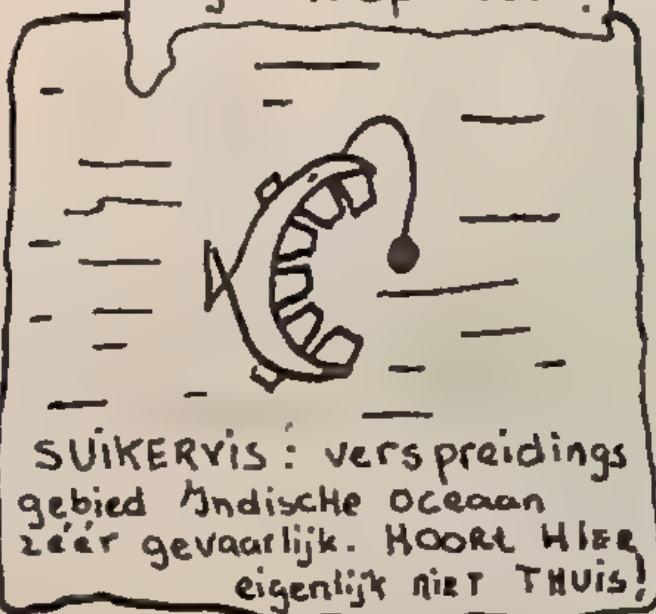 SUIKERVIS: verspreidings
gebied Indische Oceaan
zéér gevaarlijk. HOORT HIER
eigenlijk niet THUis!